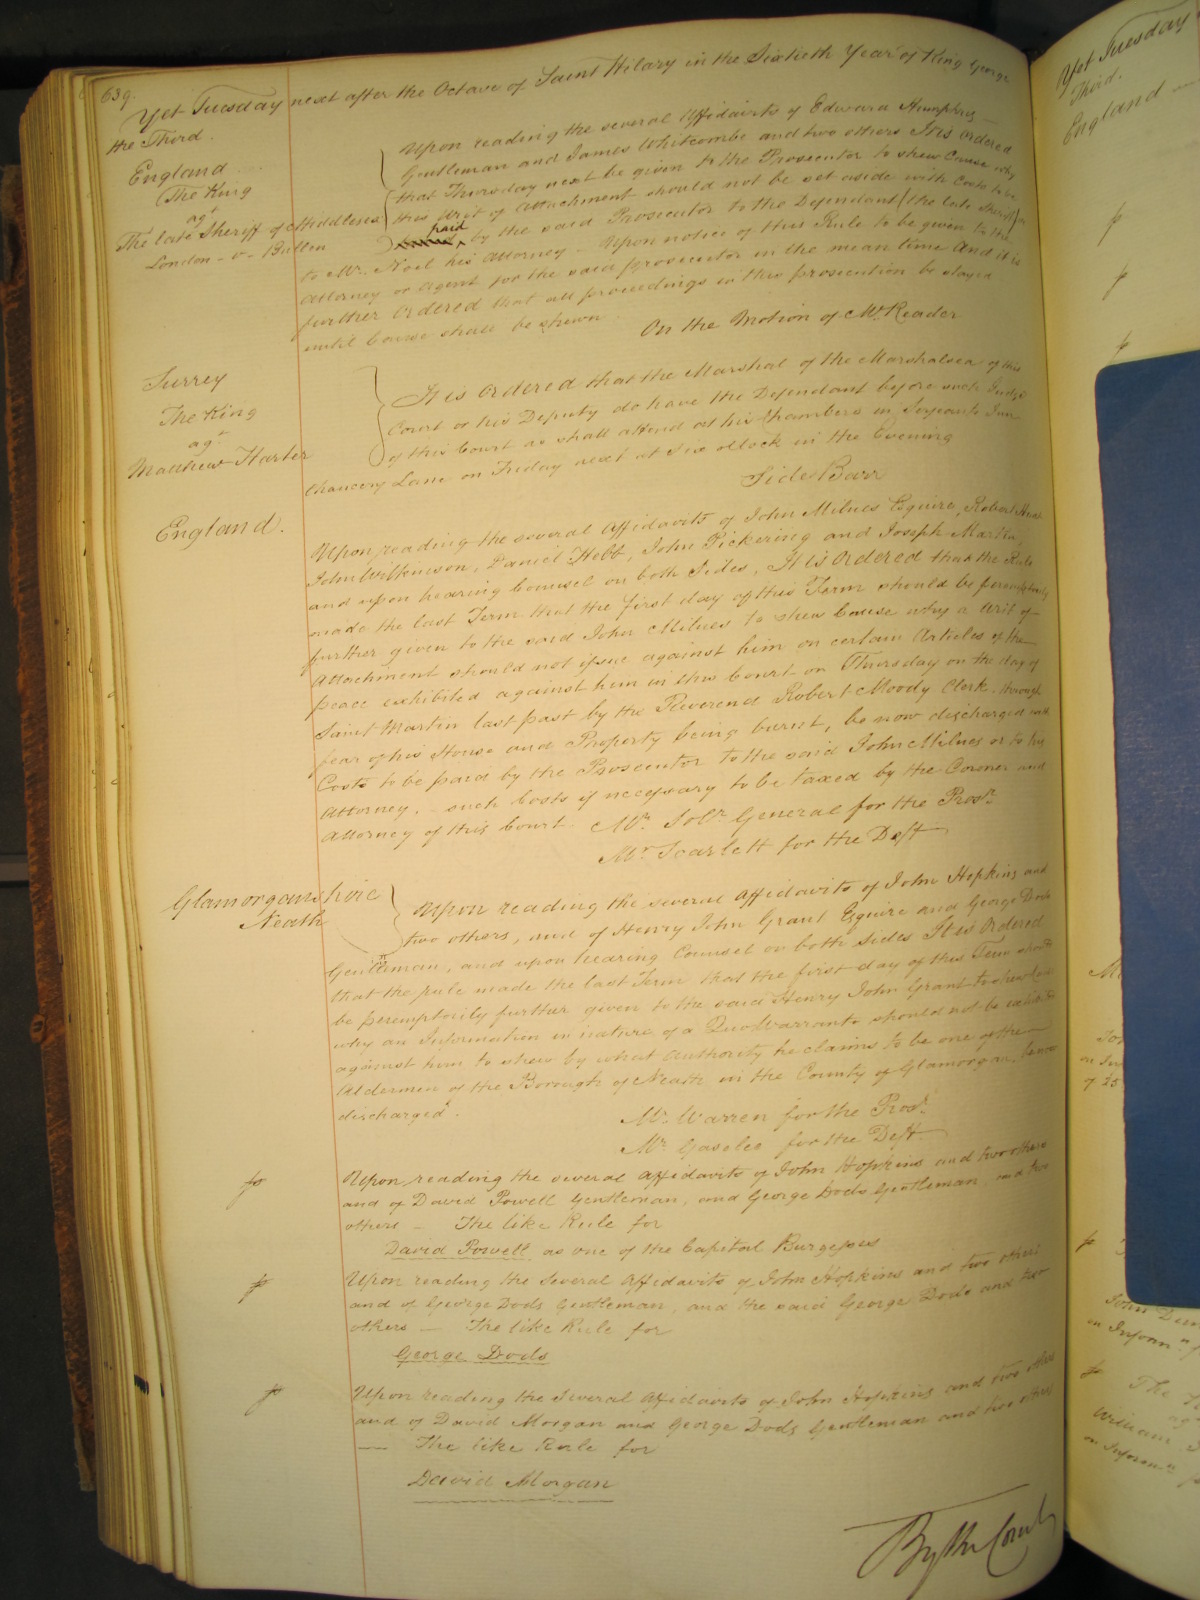 639.
Yet Tuesday next after the Octave of Saint Hilary in the Sixtieth Year of King George
the Third.
England
The King
agt
The late Sheriff of Middlesex
London - v - Bullen
Upon reading the several Affidavits of Edward Humphrys
Gentleman and James Whitcombe and two others It is ordered
that Thursday next be given to the Prosecutor to shew Cause why
the Writ of Attachment should not be set aside with Costs to be
paid by the said Prosecutor to the Defendant (the late Sheriff) or
to Mr. Noel his Attorney. Upon notice of this Rule to be given to the
Attorney or Agent for the said prosecutor in the mean time And it is
further Ordered that all proceedings in this prosecution be stayed
until Cause shall be shewn.
On the Motion of Mr. Reader
Surrey
The King
agt
Matthew Harler
It is ordered that the Marshal of the Marshalsea of this
Court or his Deputy do have the Defendant before such Judge
of this Court as shall attend at his Chambers in Serjeants Inn
Chancery Lane on Friday next at Six oClock in the Evening
Side Barr
England.
Upon reading the several Affidavits of John Milnes Esquire, Robert
John Wilkinson, Daniel Hebb, John Pickering and Joseph Martin,
and upon hearing Counsel on both Sides, It is Ordered that the Rule
made the last Term that the first day of this Term should be peremptorily
further given to the said John Milnes to shew Cause why a writ of
Attachment should not issue against him on certain Articles of the
peace exhibited against him in this Court on Thursday on the day of
Saint Martin last past by the Reverend Robert Moody Clerk. through
fear of his House and Property being burnt, be now discharged with
Costs to be paid by the Prosecutor to the said John Milnes or to his
Attorney, such Costs if necessary to be taxed by the Coroner and
Attorney of this Court.
Mr. Solr. General for the Prosr.
Mr. Scarlett for the Deft
Glamorganshire
Neath
Upon reading the several Affidavits of John Hopkins and
two others, and of Henry John Grant Esquire and George Dods
Gentleman, and upon hearing Counsel on both Sides It is Ordered
that the rule made the last Term that the first day of this Term should
be peremptorily further given to the said Henry John Grant to shew Cause
why an Information in nature of a Quo Warranto should not be exhibited
against him to shew by what authority he claims to be one of the
Aldermen of the Borough of Neath in the County of Glamorgan, be now
discharged.
Mr. Warren for the Prosr.
Mr. Gaselee for the Deft
Upon reading the several Affidavits of John Hopkins and two others
and of David Powell Gentleman, and George Dods Gentleman, and two
others — The like Rule for
David Powell as one of the Capital Burgesses
Upon reading the Several Affidavits of John Hopkins and two others
and of George Dods Gentleman, and the said George Dods and two
others — The like Rule for
George Dods
Upon reading the Several Affidavits of John Hopkins and two others
and of David Morgan and George Dods Gentleman and two others
— The like Rule for
David Morgan
By the Court
Yet Tuesday
Third.
England